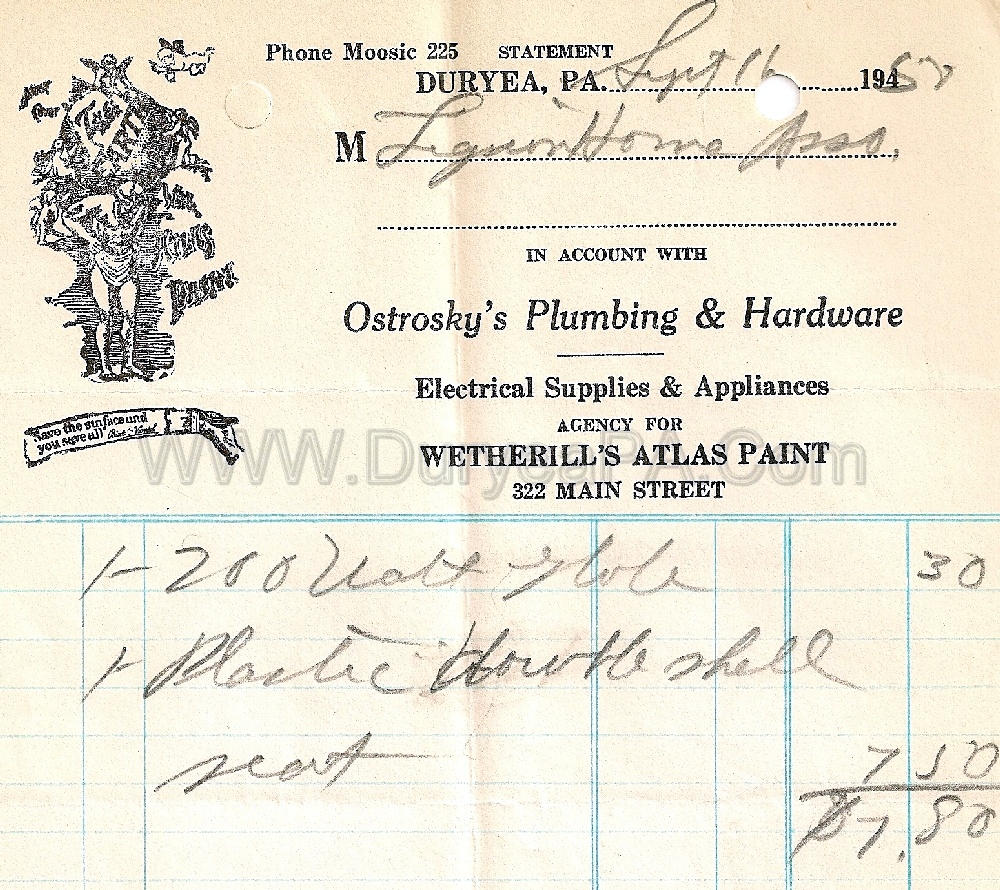 Phone Moosic 225 STATEMENT
DURYEA, PA. Sept 16 194 50
M Legion Home Asso.
IN ACCOUNT WITH
Ostrosky's Plumbing & Hardware
Electrical Supplies & Appliances
AGENCY FOR
WETHERILL'S ATLAS PAINT
322 MAIN STREET
Save the surface and
you save all
WWW.DuryeaPA.Com
1- 200 Watt Globe 30
1- Plastic shell
seat 7 50
$7.80